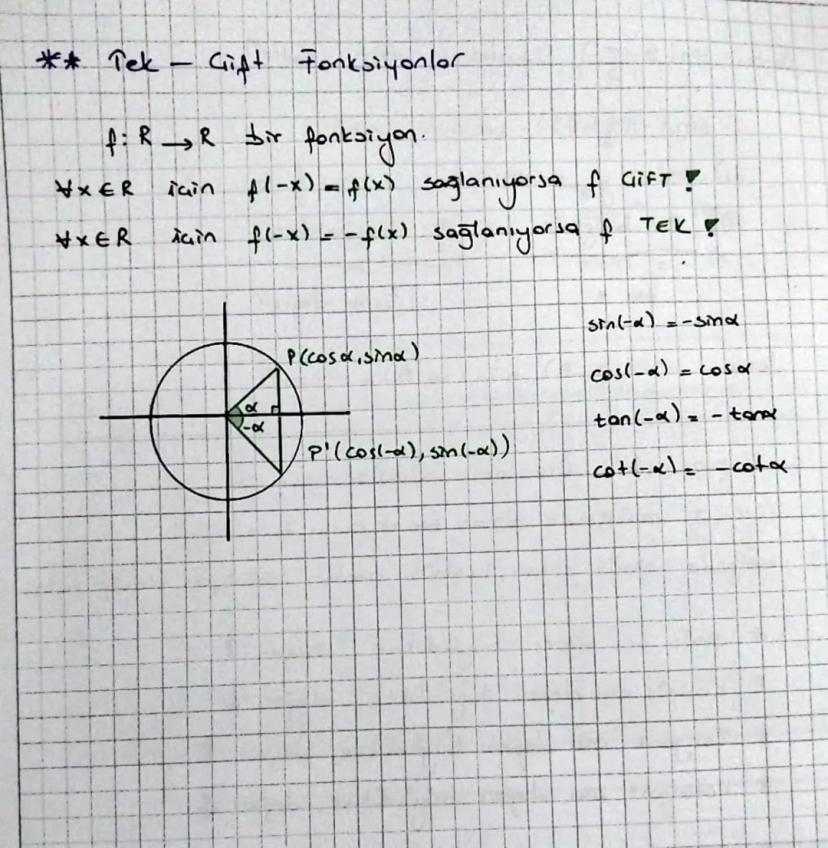 ** Tek - Çift Fonksiyonlar
f: R → R bir fonksiyon.
∀x ∈ R için f(-x) = f(x) sağlanıyorsa f ÇİFT !
∀x ∈ R için f(-x) = -f(x) sağlanıyorsa f TEK !
P(cosα, sinα)
α
-α
P'(cos(-α), sin(-α))
sin(-α) = -sinα
cos(-α) = cosα
tan(-α) = -tanα
cot(-α) = -cotα